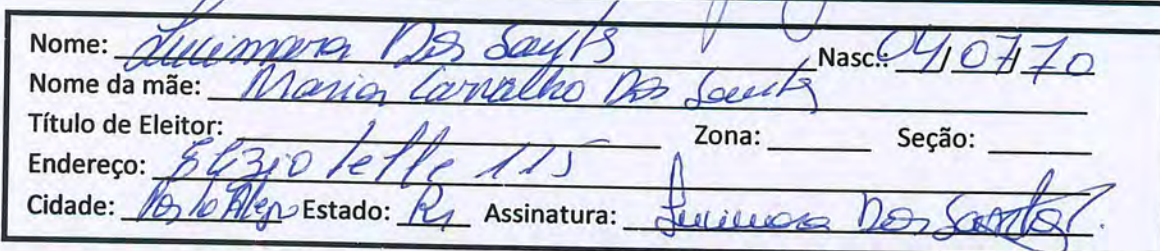 Nome: Lucimara Dos Santos Nasc.: 04/07/70
Nome da mãe: Maria Carvalho Dos Santos
Título de Eleitor: Zona: Seção:
Endereço: 115
Cidade: Porto Alegre Estado: RS Assinatura: Lucimara Dos Santos